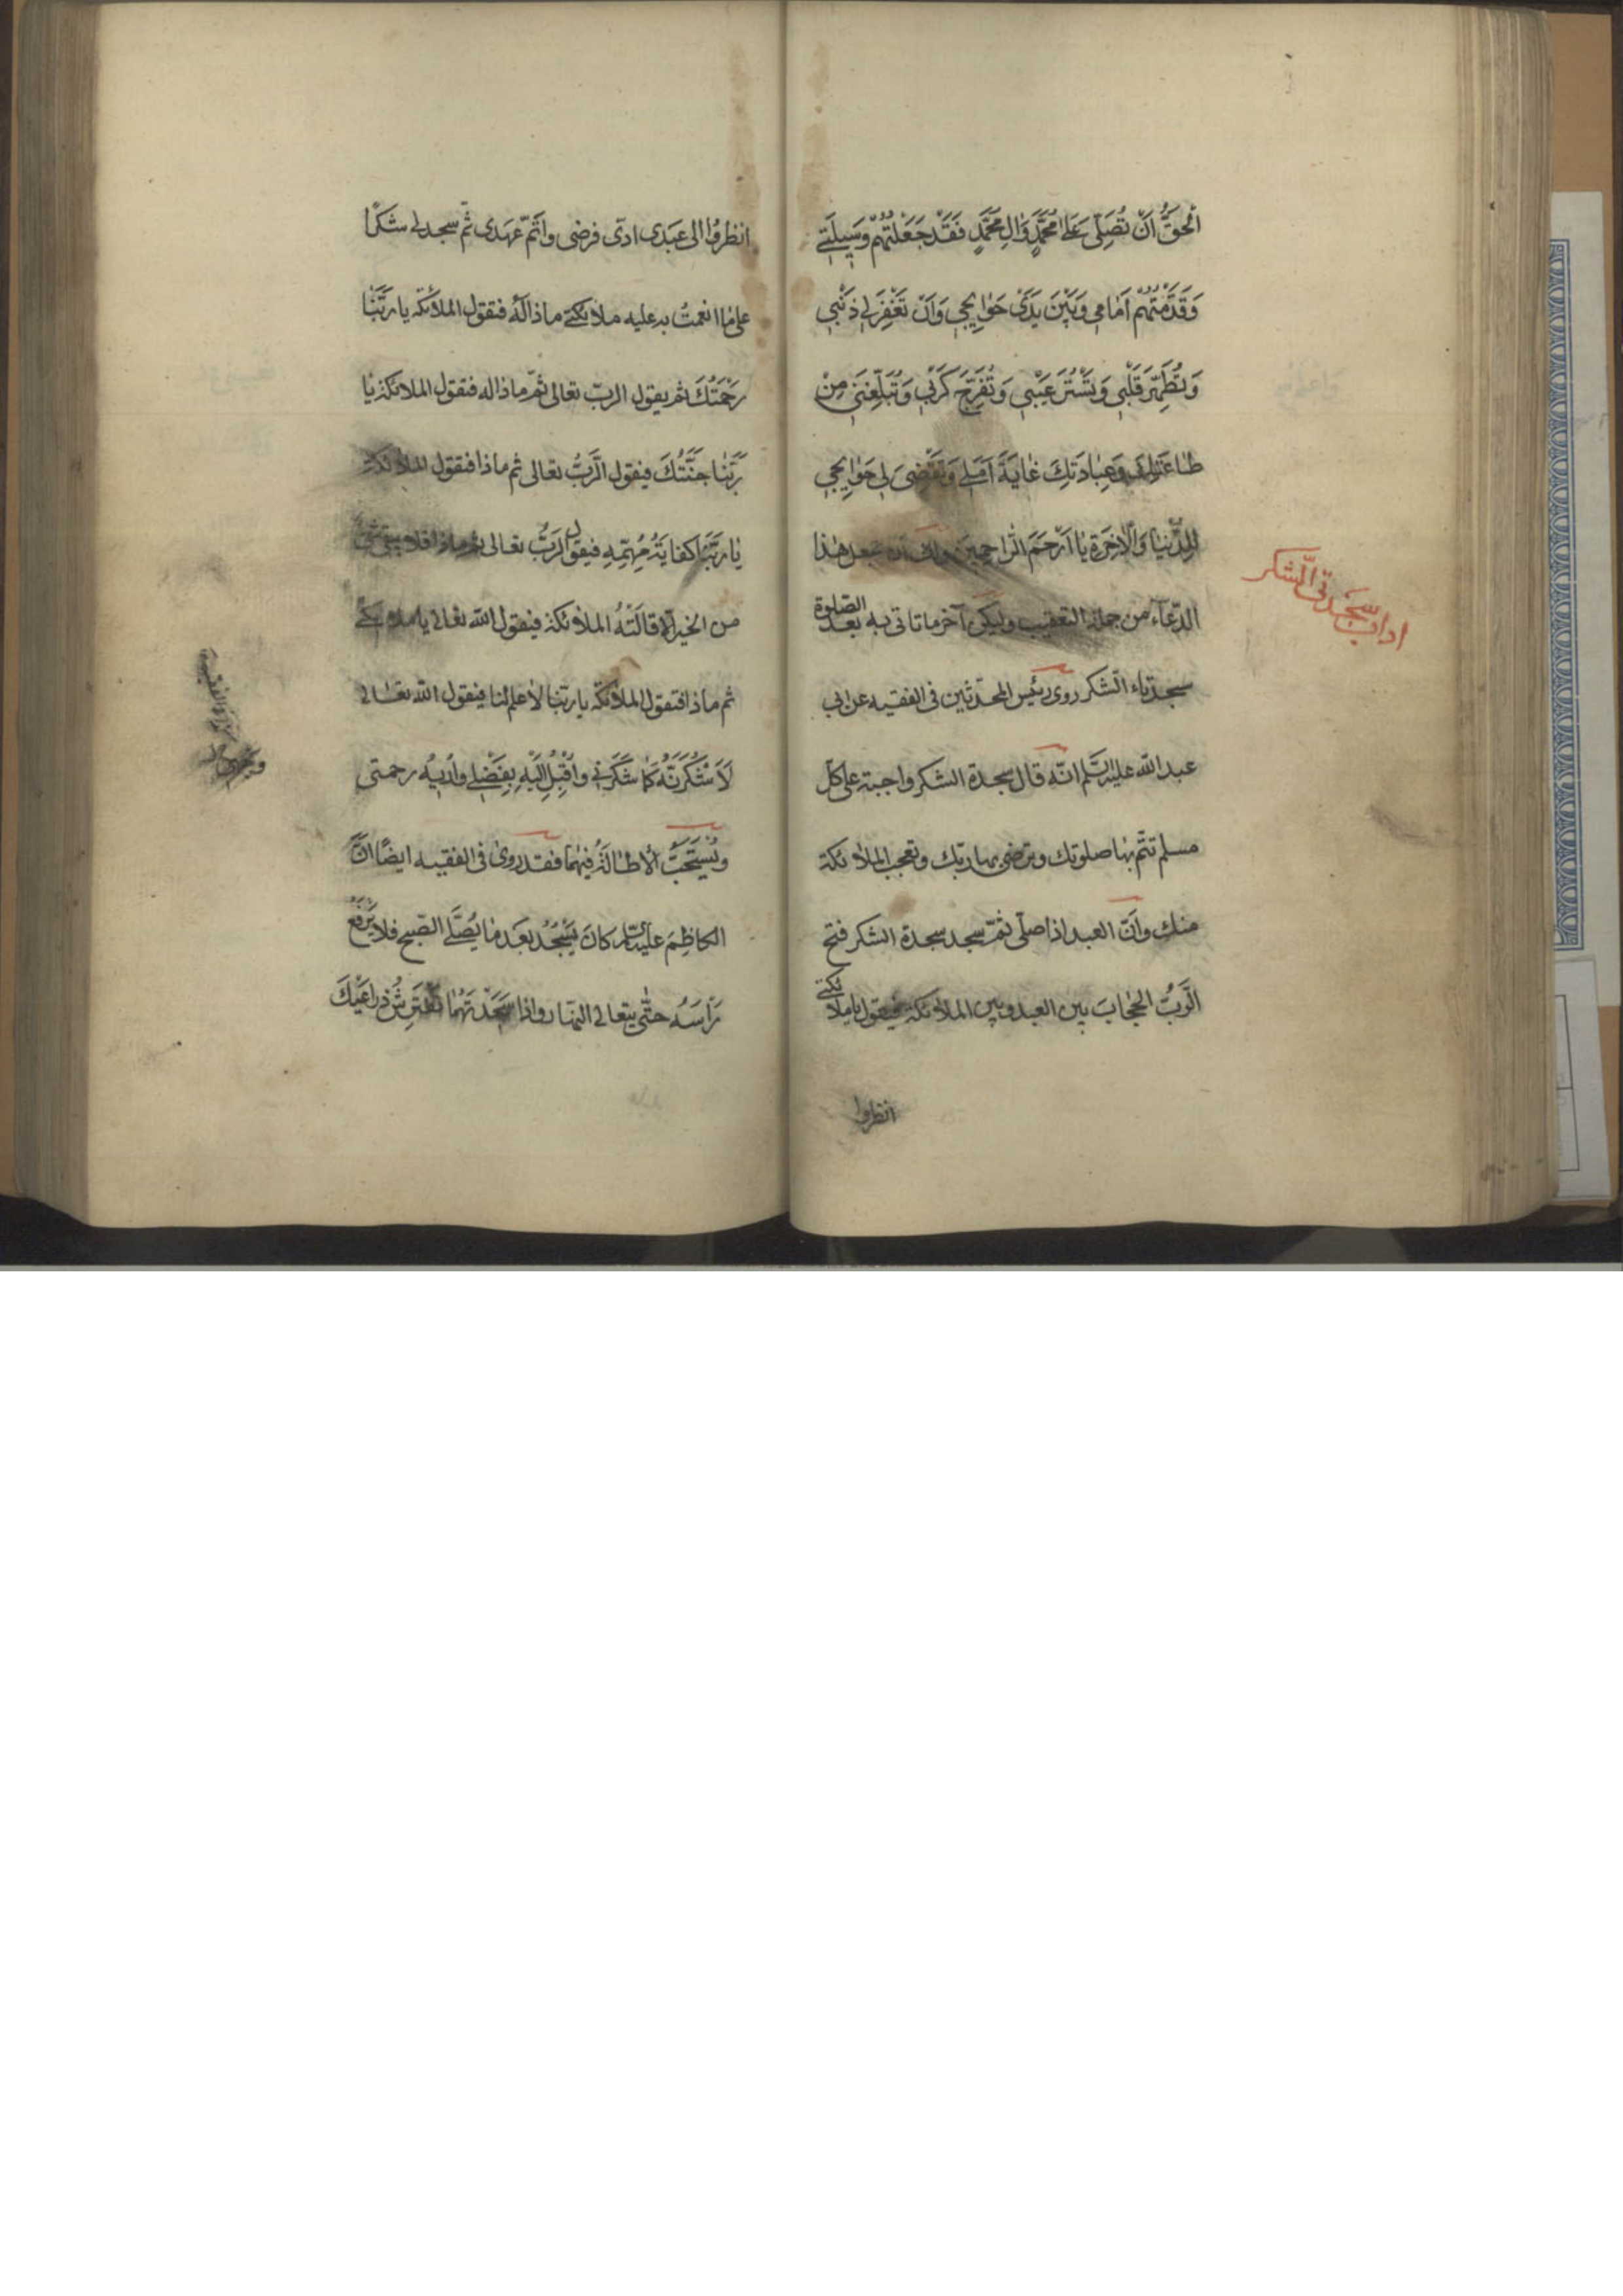 اَلْحَقُّ اَنْ تُصَلِّىَ عَلٰى مُحَمَّدٍ وَالِ مُحَمَّدٍ فَقَدْ جَعَلْتُهُمْ وَسِيلَتِي
وَقَدَّمْتُهُمْ اَمٰامِي وَبَيْنَ يَدَىْ حَوٰايِجِي وَاَنْ تَغْفِرَ لِي ذَنْبِي
وَتُطَهِّرَ قَلْبِي وَتَسْتُرَ عَيْبِي وَتُفَرِّجَ كَرْبِي وَتُبَلِّغَنِي مِنْ
طٰاعَتِكَ وَعِبٰادَتِكَ غٰايَةَ اَمَلِي وَتَقْضِىَ لِي حَوٰايِجِي
لِلدُّنْيٰا وَالْاٰخِرَةِ يٰا اَرْحَمَ الرّٰاحِمِينَ هٰذا
الدّعاء من جملة التعقيب وليكن آخر ما تاتى به بعد الصلوة
سجدتاء الشكر روى رئيس المحدثين فى الفقيه عن ابي
عبد الله عليه السّلم انّه قال سجدة الشكر واجبة على كل
مسلم تتم بها صلوتك وترضى بها ربك وتعجب الملائكة
منك وانّ العبد اذا صلّى ثمّ سجد سجدة الشكر فتح
الرّبُّ الحجٰابَ بين العبد وبين الملائكة فيقول يا ملائكتي
انظروا
اداب سجدتى الشكر
انظروا الى عبدى ادّى فرضى واتمّ عهدى ثم سجد لي شكرًا
على ما انعمتُ به عليه ملائكتي ماذا له فتقول الملائكة يا ربّنا
رحمتُكَ ثم يقول الربّ تعالى ثمّ ماذا له فتقول الملائكة يا
ربّنا جنّتُكَ فيقول الرّبُّ تعالى ثم ماذا فتقول الملائكة
يا ربّنا كفايةُ مُهِمِّهِ فيقول الربُّ تعالى ثم ماذا فلا يبقى شئ
من الخير الا قالَتْهُ الملائكة فيقول الله تعالى يا ملائكتي
ثم ماذا فتقول الملائكة يا ربّنا لا علم لنا فيقول الله تعالى
لَاَشْكُرَنَّهُ كَمٰا شَكَرَنِي وَاُقْبِلُ اِلَيْهِ بِفَضْلِي وَاُرِيهِ رحمتى
ويُسْتَحَبُّ الاطالَةُ فيهما فقد روى فى الفقيه ايضًا انّ
الكاظِمَ عليه السلم كانَ يَسْجُدُ بَعْدَ مٰا يُصَلِّي الصّبح فلا يَرْفَعُ
رَأسَهُ حتّى يتعالى النهار واذا سَجَدْتَهُمٰا افْتَرِشْ ذِراعَيْكَ